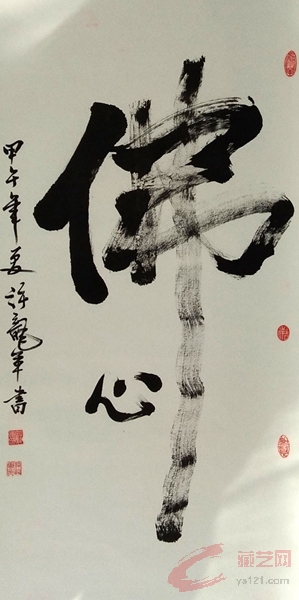 佛心
甲午年夏许龙年书
藏艺网
ys121.com